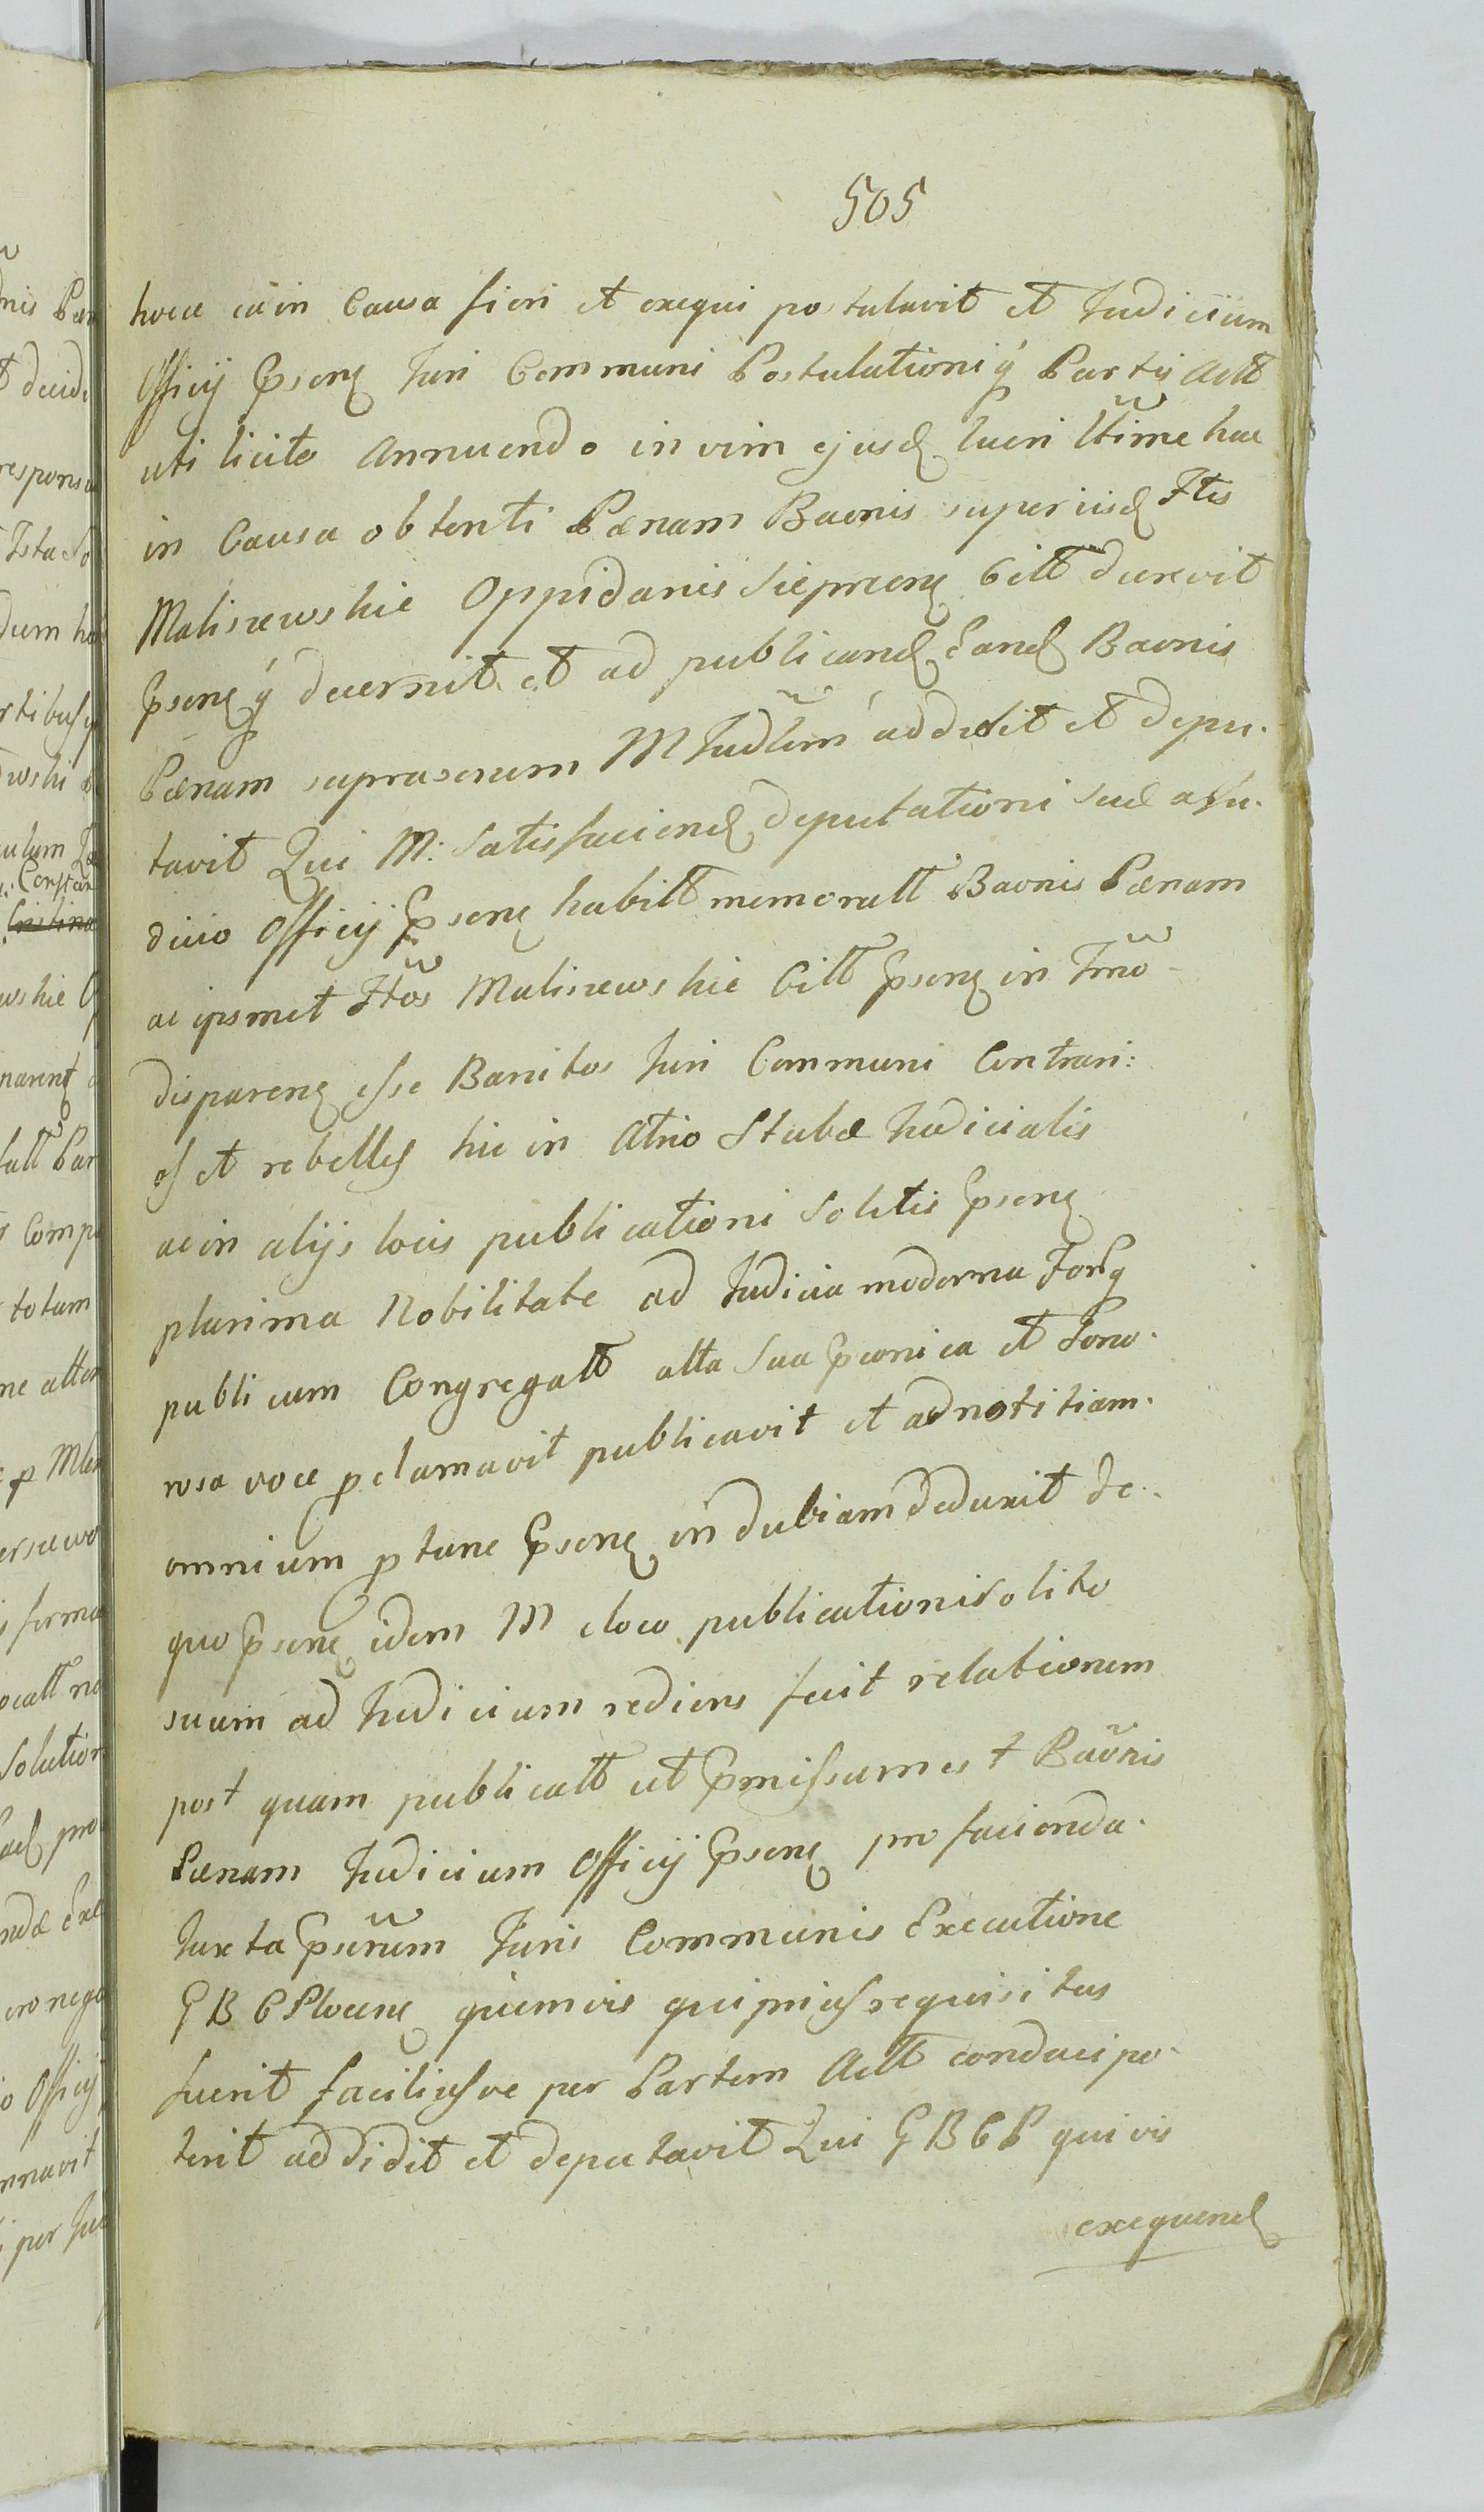 505
hocce ea in Causa fieri et exequi postulavit et Judicium
Officij Psens Juri Communi Postulationiq́ Partis Actt
uti licito Annuendo in vim ejusd lucri Ltime hac
in Causa obtenti Pænam Baonis superiusd Ftis
Maliszewskie Oppidanis Sieprcens Citt decrevit
Psensq́ decernit et ad publicand eand Baonis
Pænam suprascrnem M Judlem addidit et depu-
tavit Qui M: Satisfaciend deputationi suæ a Ju-
dicio Officij Psens habitt memoratt Baonis Pænam
ac ipsmet Ftos Maliszewskie Citt Psens in Tmo
disparens esse Banitos Juri Communi Contrari:
os et rebelles hic in Atrio Stubæ Judicialis
ac in alijs locis publicationi Solitis Psens
plurima Nobilitate ad Judicia moderna Forq
publicum Congregatt atta Sua Pconica et Sono-
rosa voce pclamavit publicavit et ad notitiam
omnium ptunc Psens indubiam deduxit de
quo Psens idem M e loco publicationi Solito
suum ad Judicium rediens fecit relationem
post quam publicatt ut Pmissum est Baonis
Pænam Judicium Officij Psens pro facienda
Juxta Pscrum Juris Communis Executione
G B C Plocens quemvis qui prius requisitus
fuerit faciliusve per Partem Actt conduci po-
terit addidit et deputavit Qui G B C P quivis
exequend